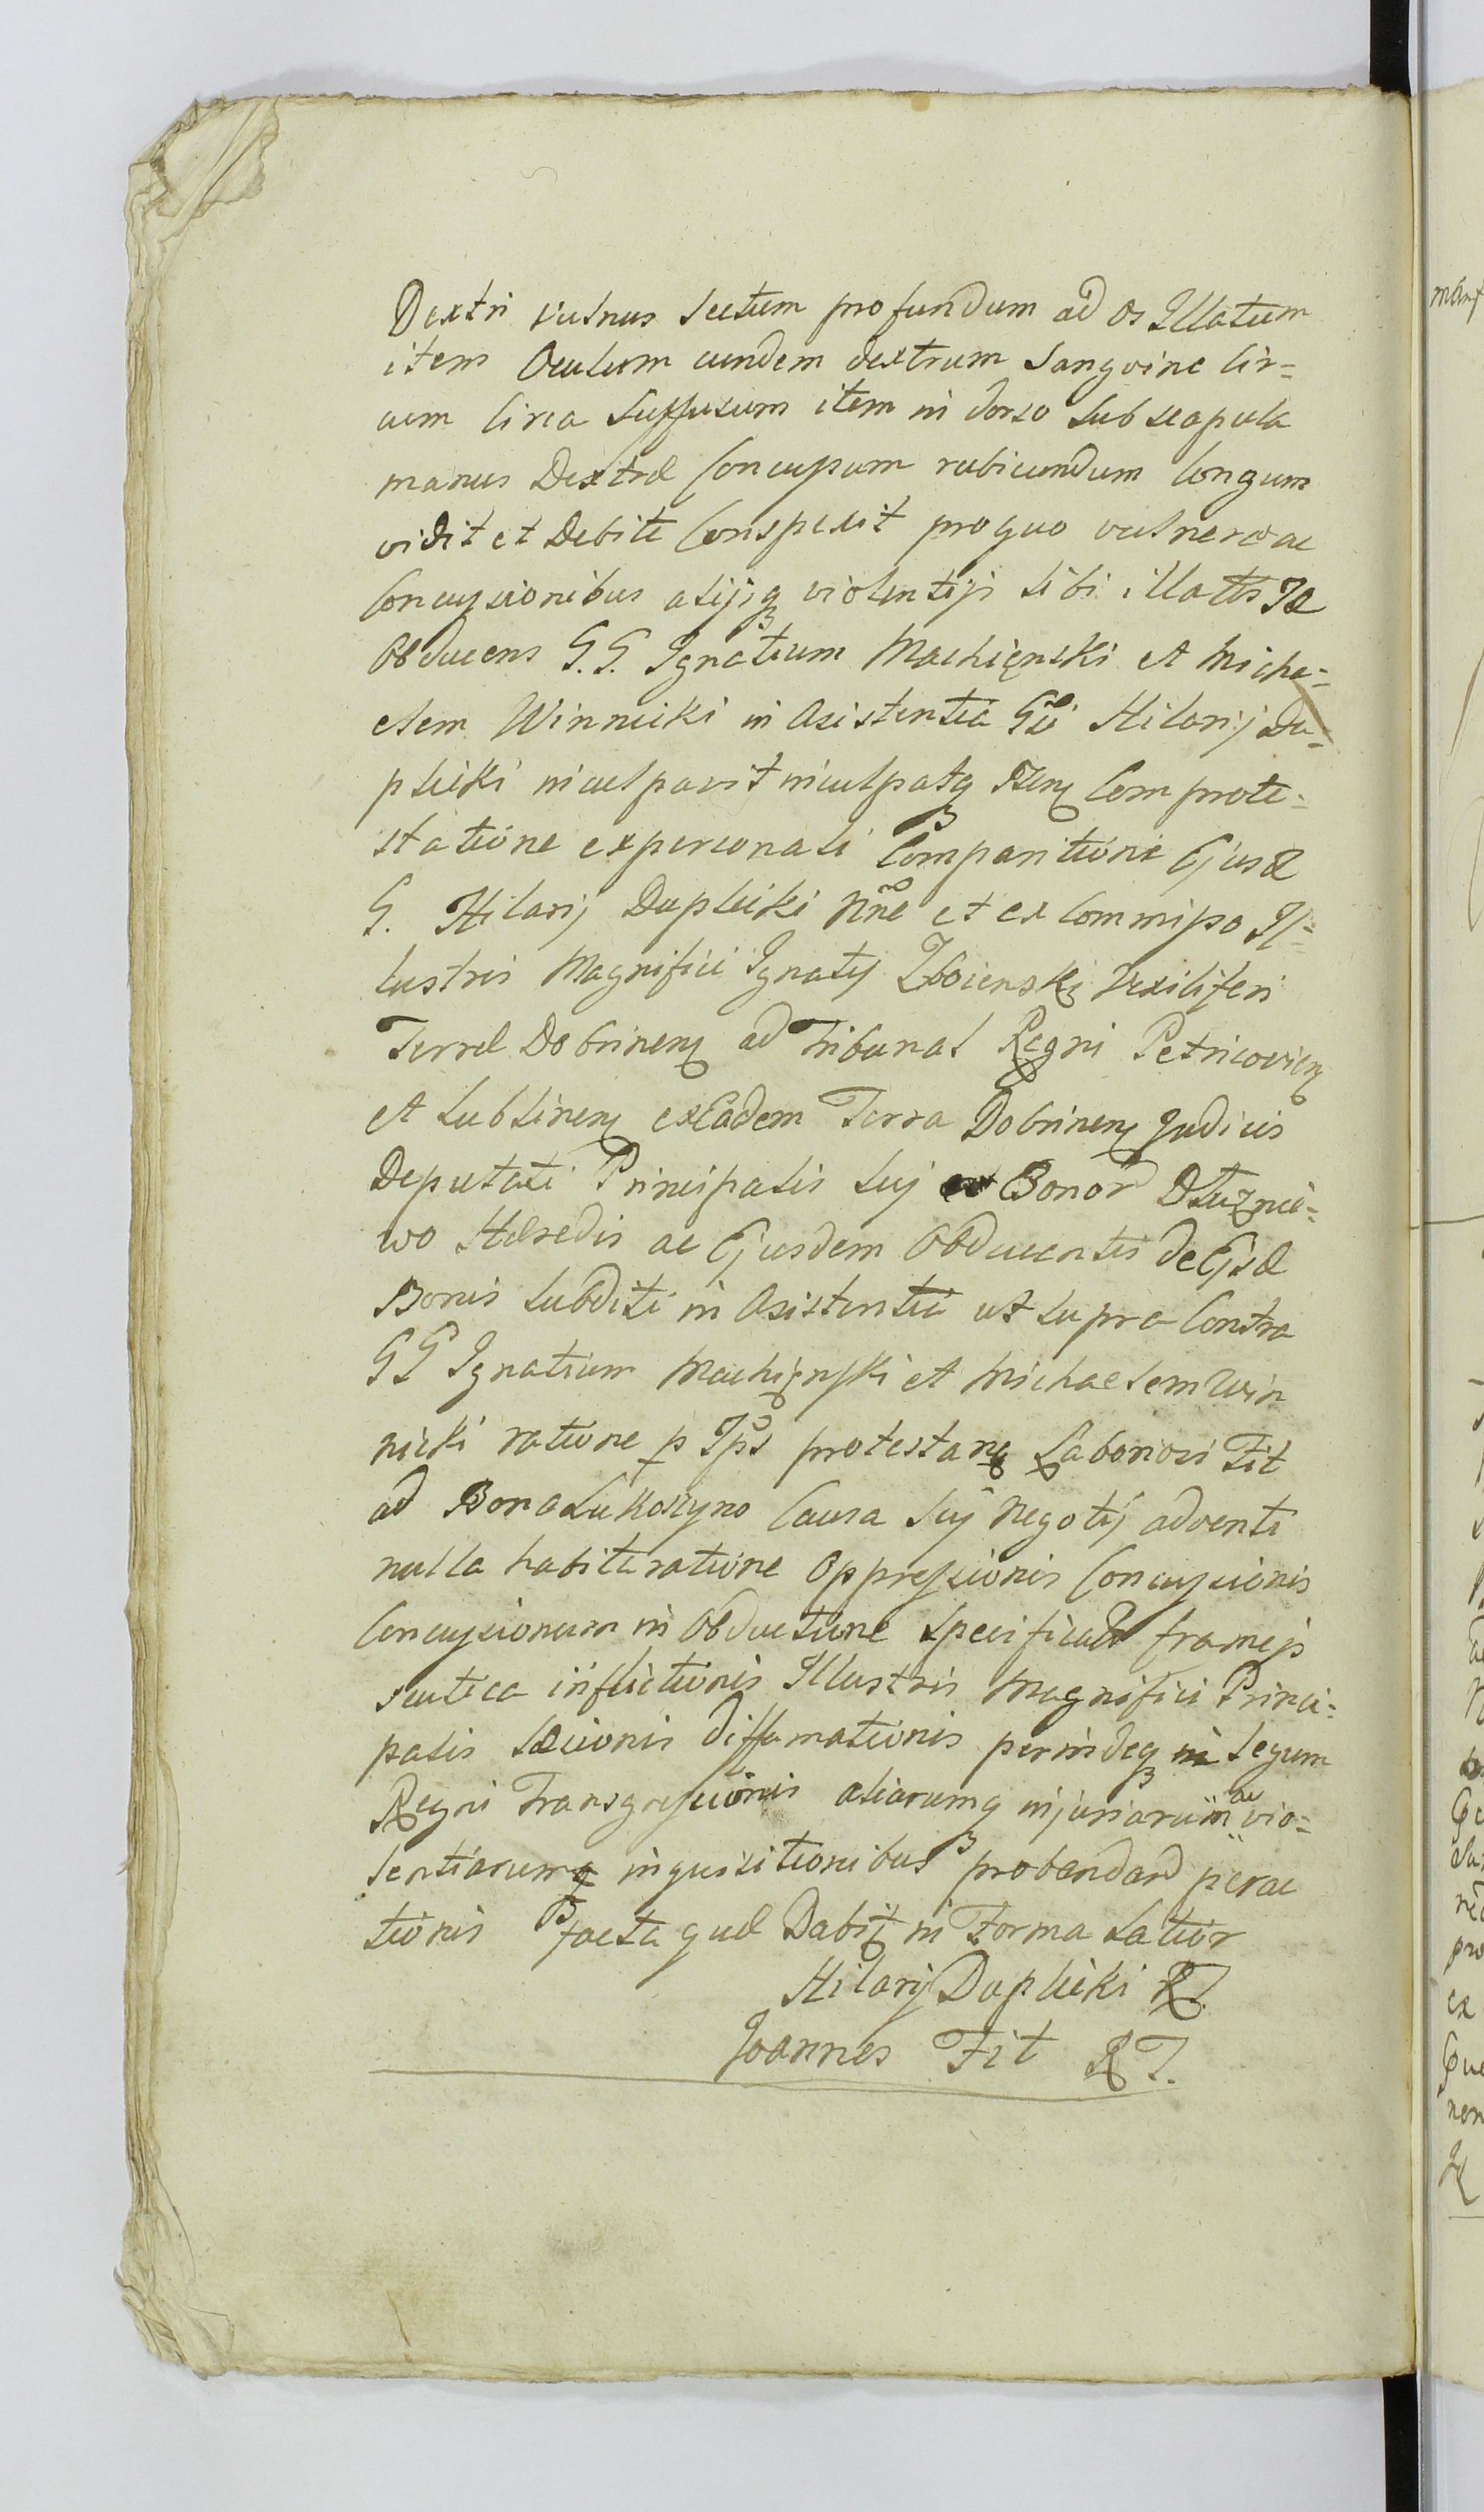 Dextri vulnus sectum profundum ad os Illatum
item Oculum eundem dextrum Sangvine Cir=
cum Circa Suffusum item in dorso Sub scapula
manus Dextræ Concussum rubicundum longum
vidit et Debite Conspexit pro quo vulnere ac
Concussionibus alijsq violentijs sibi illatis
Obducens G.G. Ignatium Machięnski et Micha=
elem Winnicki in Asistentia Gsi Hilarij Du=
plicki inculpavit inculpatq Itemq Com prote=
statione ex personali Comparitione Ejusd
G. Hilarij Duplicki Nñe et ex Commisso Il=
lustris Magnifici Ignatij Zboienski Vexiliferi
Terræ Dobrinenş ad Tribunal Regni Petricovienş
et Lublinenş ex Eadem Terra Dobrinenş Judicis
Deputati Principalis Sui Bonor Dłuznie=
wo Hæredis ac Ejusdem Obducentis de Ejsd
Bonis Subditi in Asistentia ut Supra Contra
GG Ignatium Machięnski et Michaelem Win
nicki ratione p Ips protestanę Laboriosi Fit
ad Bona Lukoszyno Causa Sui Negotij adventi
nulla habita ratione Oppressionis Concussionis
Concussionum in Obductione Specificat frameis
scutica inflictionis Illustris Magnifici Princi=
palis Læsionis diffamationis perindeq in Legum
Regni Transgressionis aliarumq injuriarum ac vio=
lentiarumq inquisitionibus probandar perac
tionis facta quæ Dabit in Forma Latior
Hilarij Duplicki RT.
Joannes Fit RT.